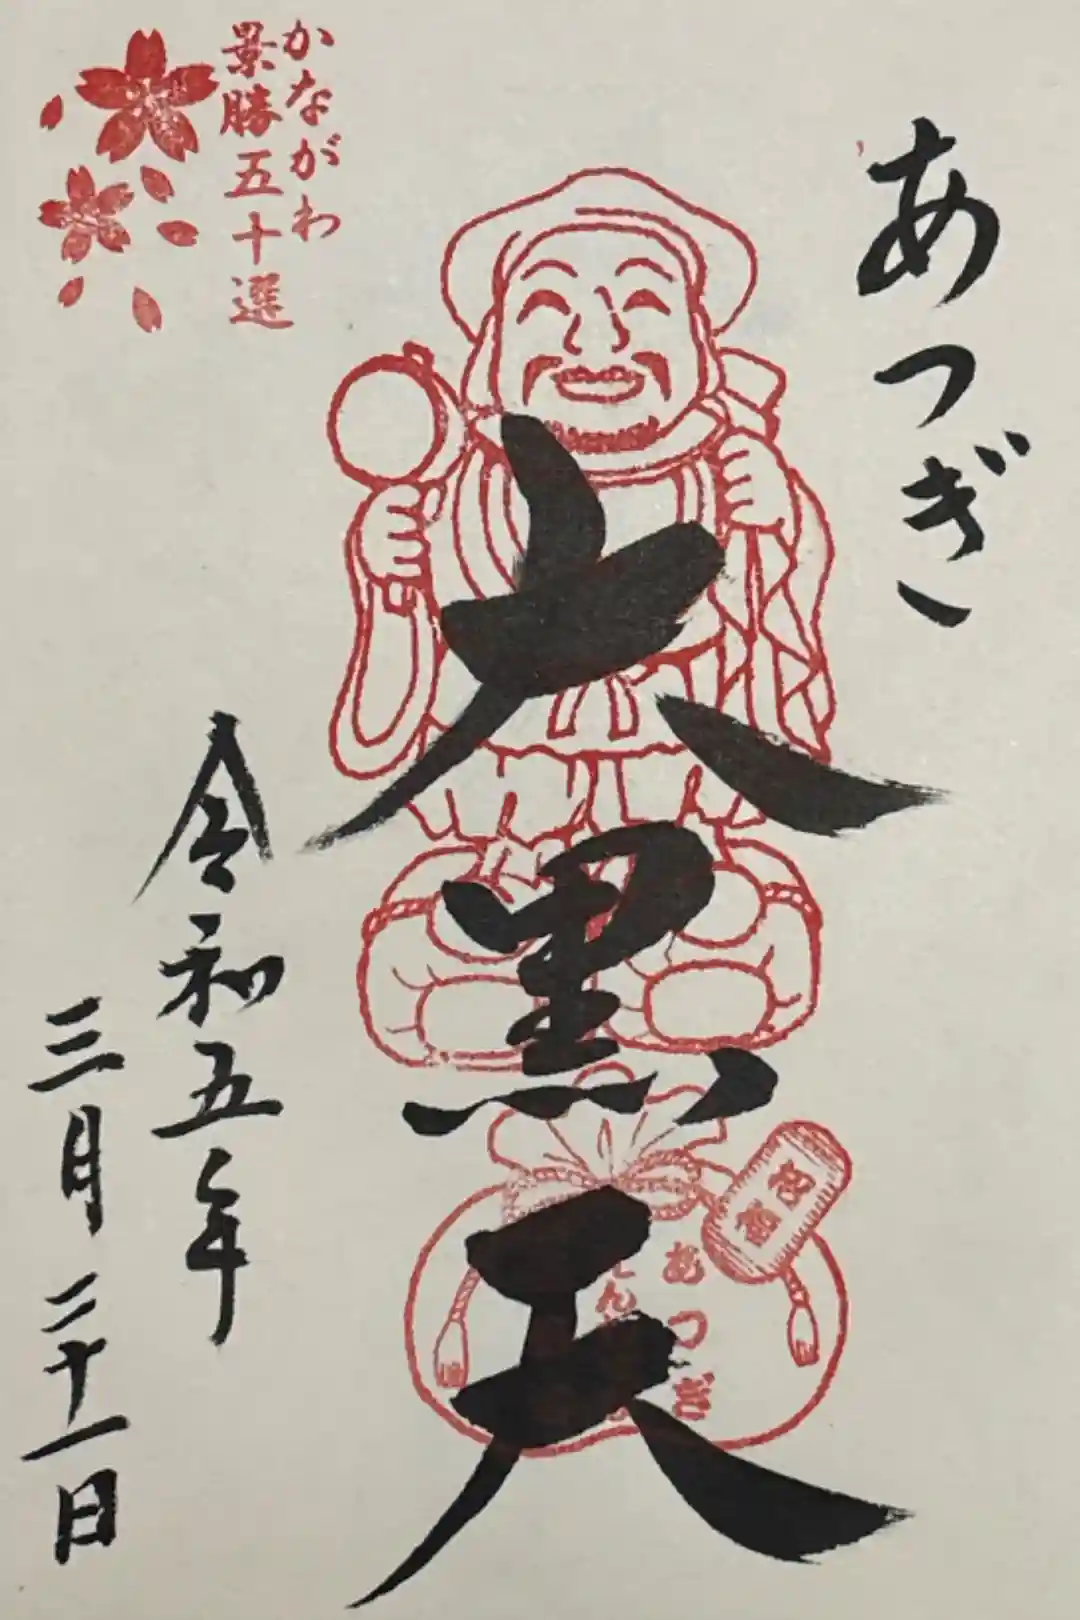 かながわ
景勝五十選
あつぎ
大黒天
令和五年
三月二十一日
あつぎ